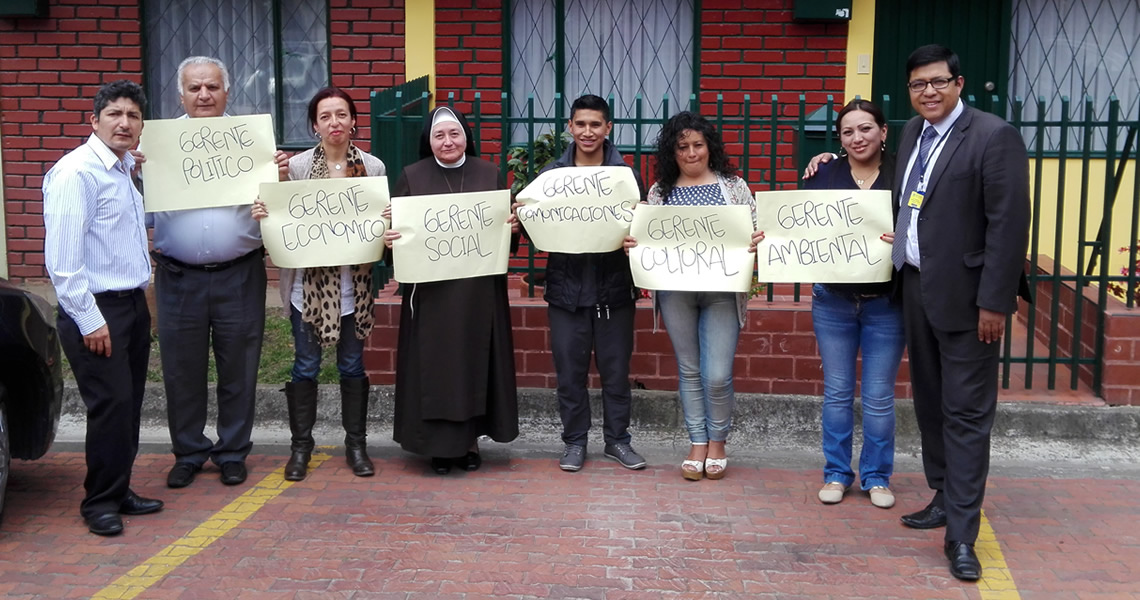 GERENTE
POLÍTICO
GERENTE
ECONOMICO
GERENTE
SOCIAL
GERENTE
COMUNICACIONES
GERENTE
CULTURAL
GERENTE
AMBIENTAL